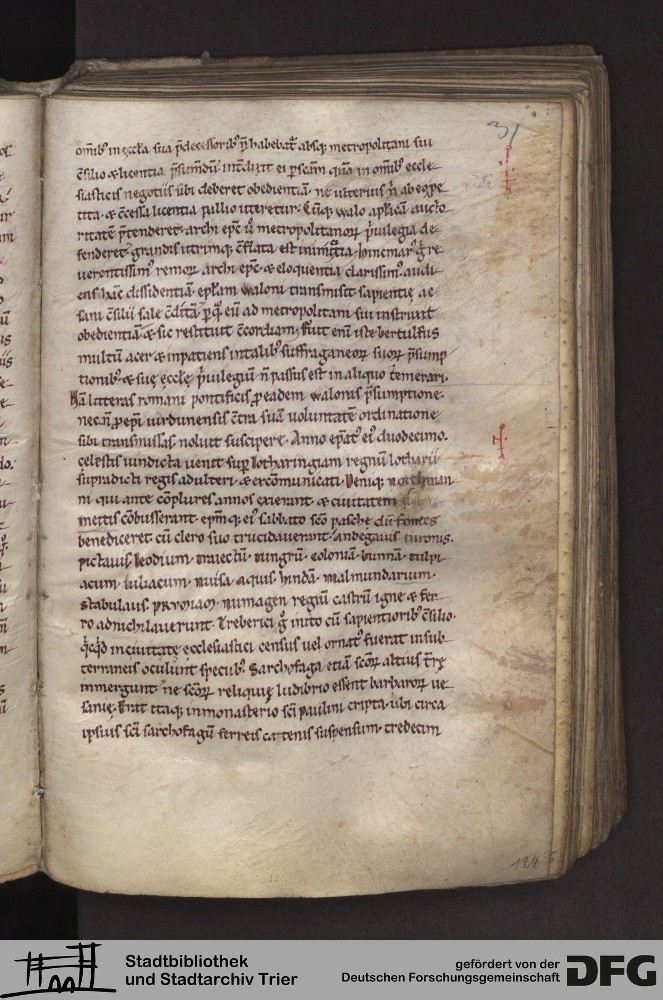 31
om̅ib; in eccl̅a sua p̅decessorib; n̅ habebat̅ absq; metropolitani sui
c̅silio & licentia p̅su̅mdu̅
siasticis negotiis sibi deberet obedientia̅ ne ulterius
tita & c̅cessa licentia pallio uteretur. Cu̅q; walo ap̅lica̅ aucto
ritate̅ p̅tenderet. archi ep̅c u̅ metropolitanoꝝ p̅uilegia de
fenderet. grandis utrimq; c̅flata est inimicitia. hincmar'
uerentissim' remoꝝ archi ep̅c & eloquentia clarissim'. audi
ens hanc dissidentia̅ ep̅lam waloni transmisit sapientie ae
sani c̅silii sale c̅dita̅. eu̅ ad metropolitani sui instruxit
obedientia̅ & sic restituit c̅cordiam. fuit eni̅ iste bertulfus
multu̅ acer & inpatiens in talib; suffraganeoꝝ suoꝝ p̅sump
tionib; & sue eccl̅e p̅uilegiu̅ n̅ passus est in aliquo temerari.
Na̅ litteras romani pontificis p̅ eadem walonis p̅sumptione.
nec n̅ p̅ ep̅i uirdunensis c̅tra sua̅ uoluntate̅ ordinatione
sibi transmissas noluit suscipere. Anno ep̅at' ei' duodecimo.
celestis uindicta uenit sup̅ lotharingiam regnu̅ lotharii
supradicti regis adulteri & exco̅municati. Deniq; northman
ni qui ante co̅plures annos exierant & ciuitatem
mettis co̅busserant. ep̅mq; ei' sabbato sc̅o pasche du̅ fontes
benediceret cu̅ clero suo trucidauerant. andegauis turonis.
pictauis leodium. traiectu̅. tungru̅. colonia̅. bunna̅. tulpi
acum. iuliacum. nuisa. aquis. hinda̅. malmundarium.
stabulaus prvmiam. numagen regiu̅ castru̅ igne & fer
ro adnichilauerunt. Treberici g̊ inito cu̅ sapientiorib; c̅silio.
q̊cq̊d in ciuitate ecclesiastici census uel ornat' fuerat in sub
terraneis oculunt specub;. Sarchofaga etia̅ sc̅oꝝ altius t̅re
inmergunt. ne sc̅oꝝ reliquie ludibrio essent barbaroꝝ ue
sanie. Erat itaq; in monasterio sc̅i paulini cripta. ubi circa
ipsius sc̅i sarchofagu̅ ferreis catenis suspensum. tredecim
124
Stadtbibliothek
und Stadtarchiv Trier
gefördert von der
Deutschen Forschungsgemeinschaft
DFG